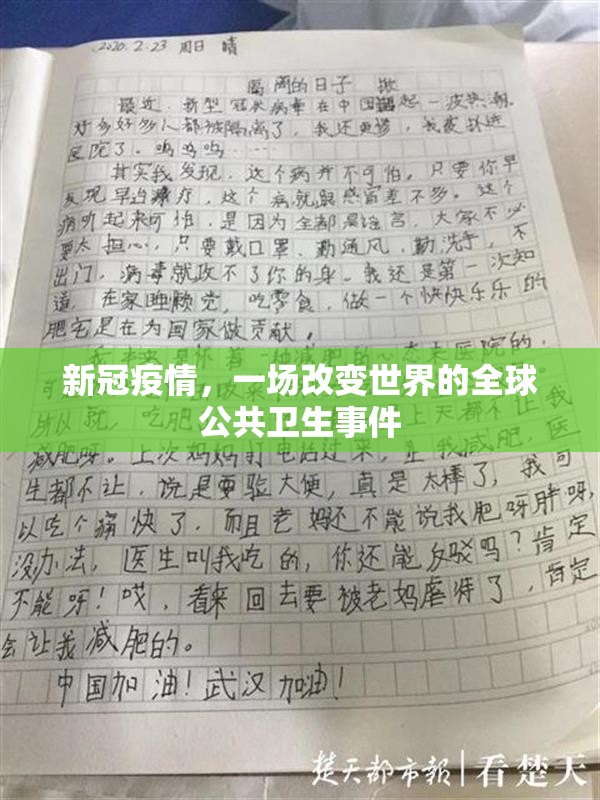 2020.2.23 周日 晴
隔离的日子
最近,新型冠状病毒在中国掀起一波热潮。
好多好多人都被隔离了,我还更惨,我被环进
医院了。呜呜呜……
其实我发现,这个病并不可怕。只要你早
发现早治疗,这个病就跟感冒差不多。这个
病听起来可怕,是因为全都是谣言,大家不必
要太担心,只要戴口罩、勤通风、勤洗手,不
出门,病毒就攻不了你的身。我还是第一次知
道,在家睡觉,吃零食,做一个快快乐乐的
肥宅是在为国家做贡献。
新冠疫情,一场改变世界的全球
公共卫生事件
减肥呀。上次妈妈打电话过来,是我减肥,医
生都不让,说是要验大便,真是太棒了,我可
以吃个痛快了,而且老妈还不能说我肥呀胖呀,
没办法,医生叫我吃的,你还能反驳吗?肯定
不能呀!哎,看来回去要被老妈虐待了,肯定
会让我减肥的。
中国加油!武汉加油!
楚天都市报|看楚天